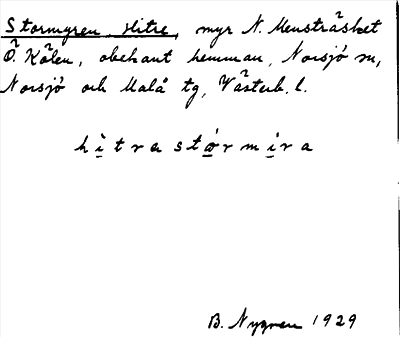 Stormyren, Hitre, myr N. Mensträsket
Ö. Kölen, obehant hemman, Norsjö sn,
Norsjö och Malå tg, Västerb. l.
hitrastormira
B. Nygren 1929